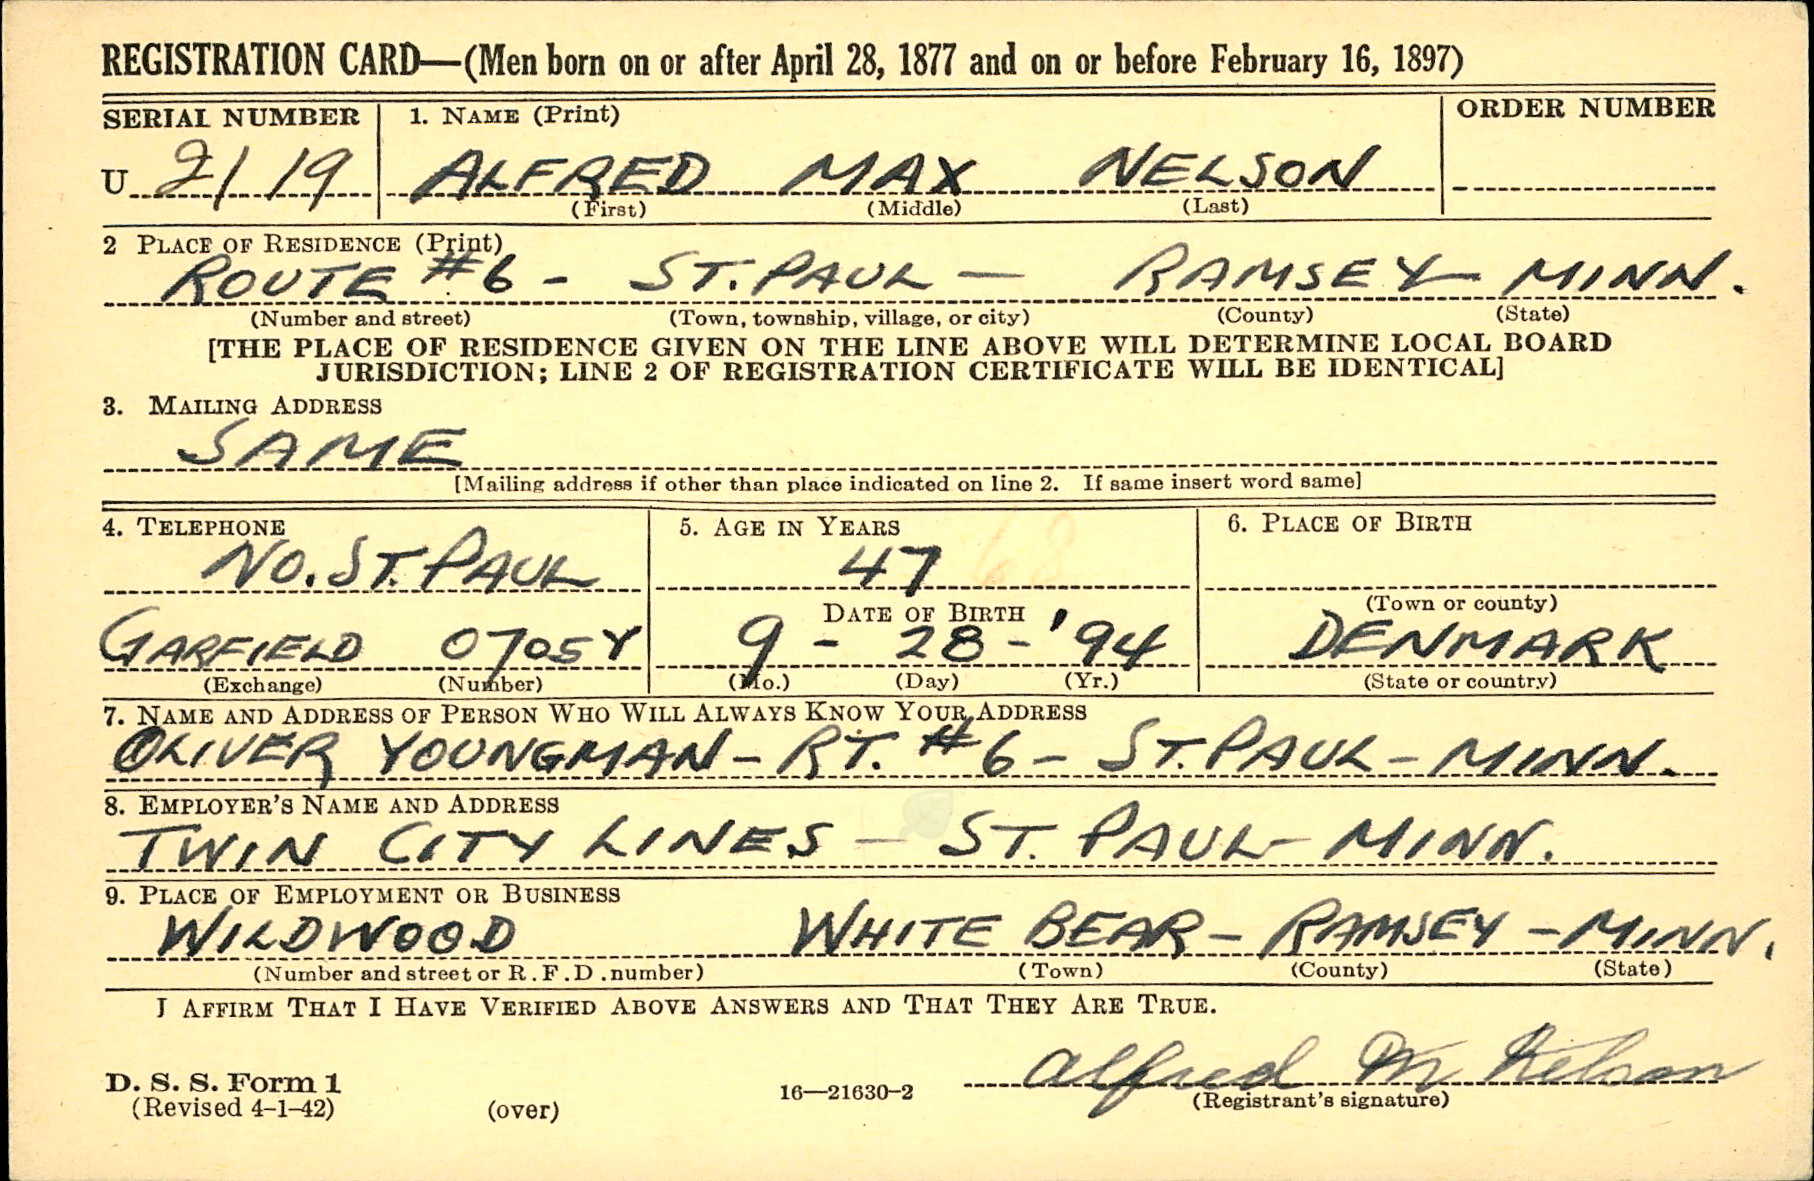 REGISTRATION CARD—(Men born on or after April 28, 1877 and on or before February 16, 1897)
SERIAL NUMBER 1. NAME (Print) ORDER NUMBER
U 2119 ALFRED MAX NELSON
(First) (Middle) (Last)
2 PLACE OF RESIDENCE (Print)
ROUTE #6 - ST. PAUL — RAMSEY — MINN.
(Number and street) (Town, township, village, or city) (County) (State)
[THE PLACE OF RESIDENCE GIVEN ON THE LINE ABOVE WILL DETERMINE LOCAL BOARD
JURISDICTION; LINE 2 OF REGISTRATION CERTIFICATE WILL BE IDENTICAL]
3. MAILING ADDRESS
SAME
[Mailing address if other than place indicated on line 2. If same insert word same]
4. TELEPHONE 5. AGE IN YEARS 6. PLACE OF BIRTH
NO. ST. PAUL 47 68
DATE OF BIRTH (Town or county)
GARFIELD 0705Y 9 - 28 - '94 DENMARK
(Exchange) (Number) (Mo.) (Day) (Yr.) (State or country)
7. NAME AND ADDRESS OF PERSON WHO WILL ALWAYS KNOW YOUR ADDRESS
OLIVER YOUNGMAN - RT. #6 - ST. PAUL - MINN.
8. EMPLOYER'S NAME AND ADDRESS
TWIN CITY LINES - ST. PAUL - MINN.
9. PLACE OF EMPLOYMENT OR BUSINESS
WILDWOOD WHITE BEAR - RAMSEY - MINN.
(Number and street or R.F.D. number) (Town) (County) (State)
I AFFIRM THAT I HAVE VERIFIED ABOVE ANSWERS AND THAT THEY ARE TRUE.
Alfred M Nelson
D. S. S. Form 1 16—21630-2 (Registrant's signature)
(Revised 4-1-42) (over)